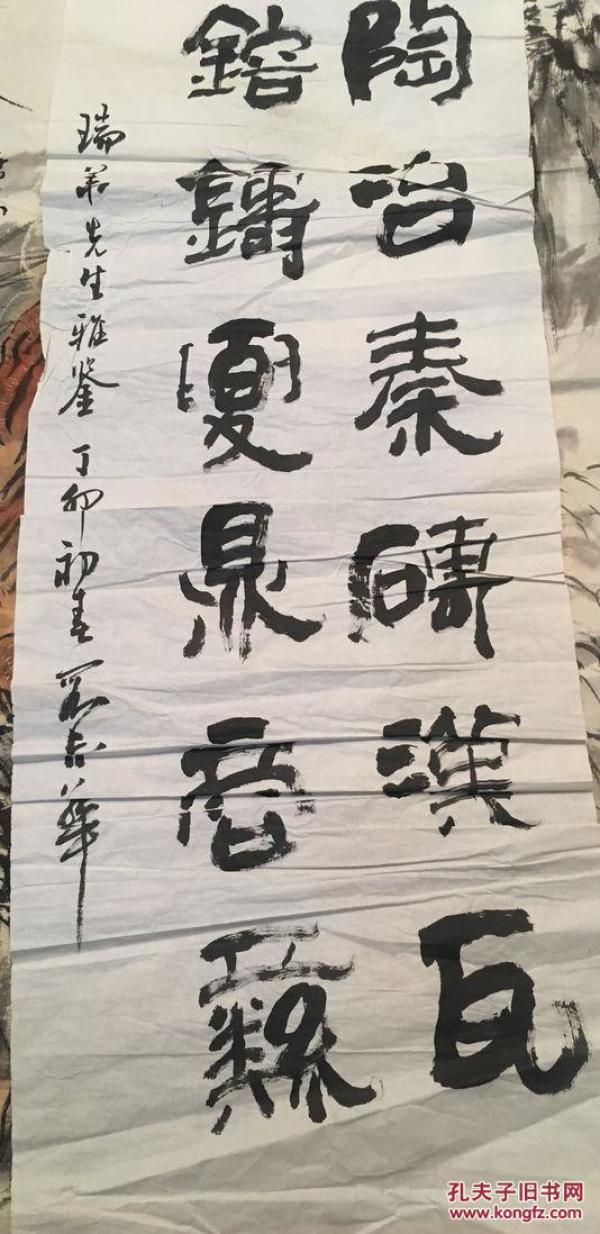 陶冶秦磚漢瓦
鎔鑄夏鼎商彝
瑞
先生雅鑒 丁卯初春
華
孔夫子旧书网
www.kongfz.com